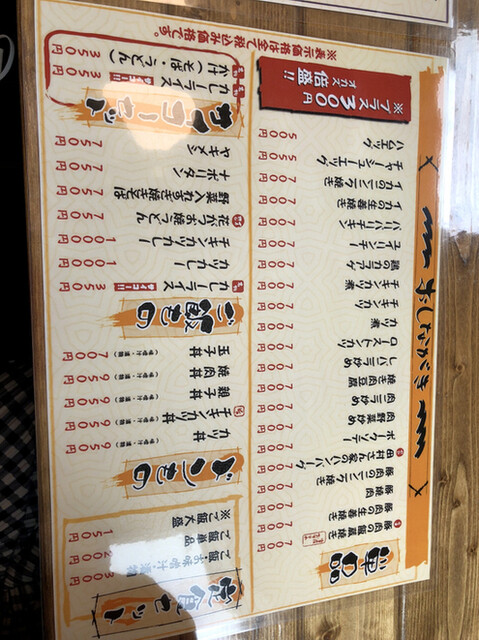 おしながき
単品
豚肉の生姜焼き 700円
豚焼肉 700円
豚肉のニンニク焼き 700円
田井さん家のハンバーグ 700円
ポークソテー 700円
肉野菜炒め 700円
肉ニラ炒め 700円
焼き肉豆腐 700円
レバニラ炒め 700円
カツ煮 700円
チキンカツ 700円
チキンカツ煮 700円
鶏のカラアゲ 700円
ユイリンチー 700円
イカの生姜焼き 700円
イカのニンニク焼き 700円
チャーシューエッグ 550円
ハムエッグ 500円
※プラス300円
オカズ倍盛!!
定食セット
ご飯・お味噌汁・漬物 300円
ご飯単品 200円
※ご飯大盛 150円
ドンもの
カツ丼(味噌汁・漬物) 950円
チキンカツ丼(味噌汁・漬物) 950円
親子丼(味噌汁・漬物) 950円
焼肉丼(味噌汁・漬物) 950円
玉子丼(味噌汁・漬物) 700円
ご飯もの
カレーライス サイコー!! 350円
カツカレー 1000円
チキンカツカレー 1000円
花がつお焼うどん 750円
野菜入れすぎ焼そば 750円
ナポリータン 750円
ヤキメシ 750円
サイコーセット
カレーライス サイコー!! 350円
かけ(そば・うどん) 350円
※表示価格は全て税込み価格です。